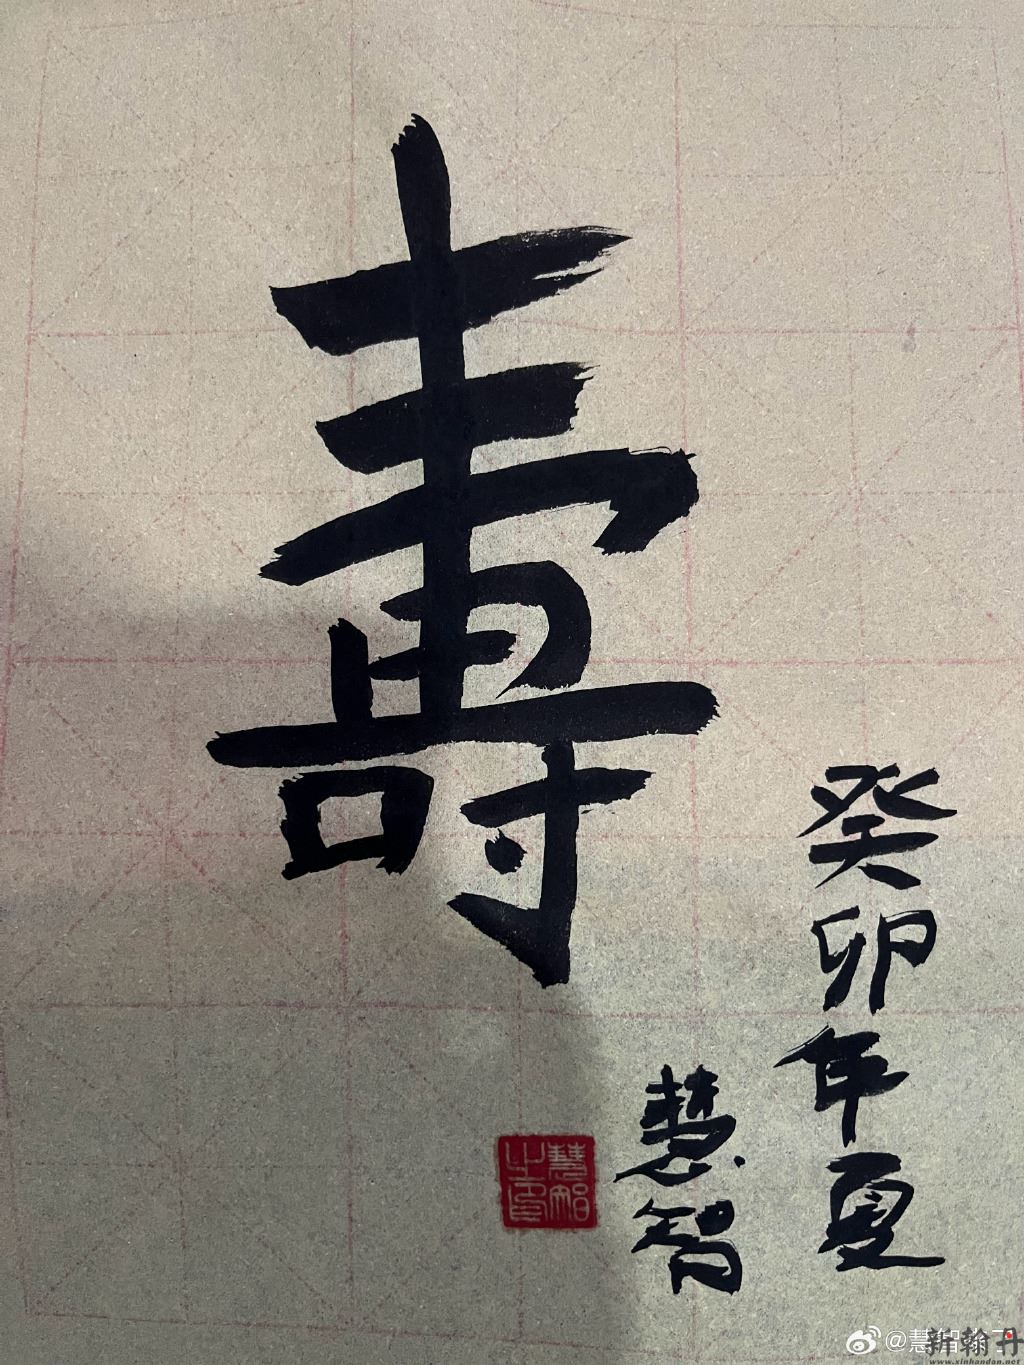 壽
癸卯年夏
慧智
慧智之印
新翰丹
www.xinhandan.net